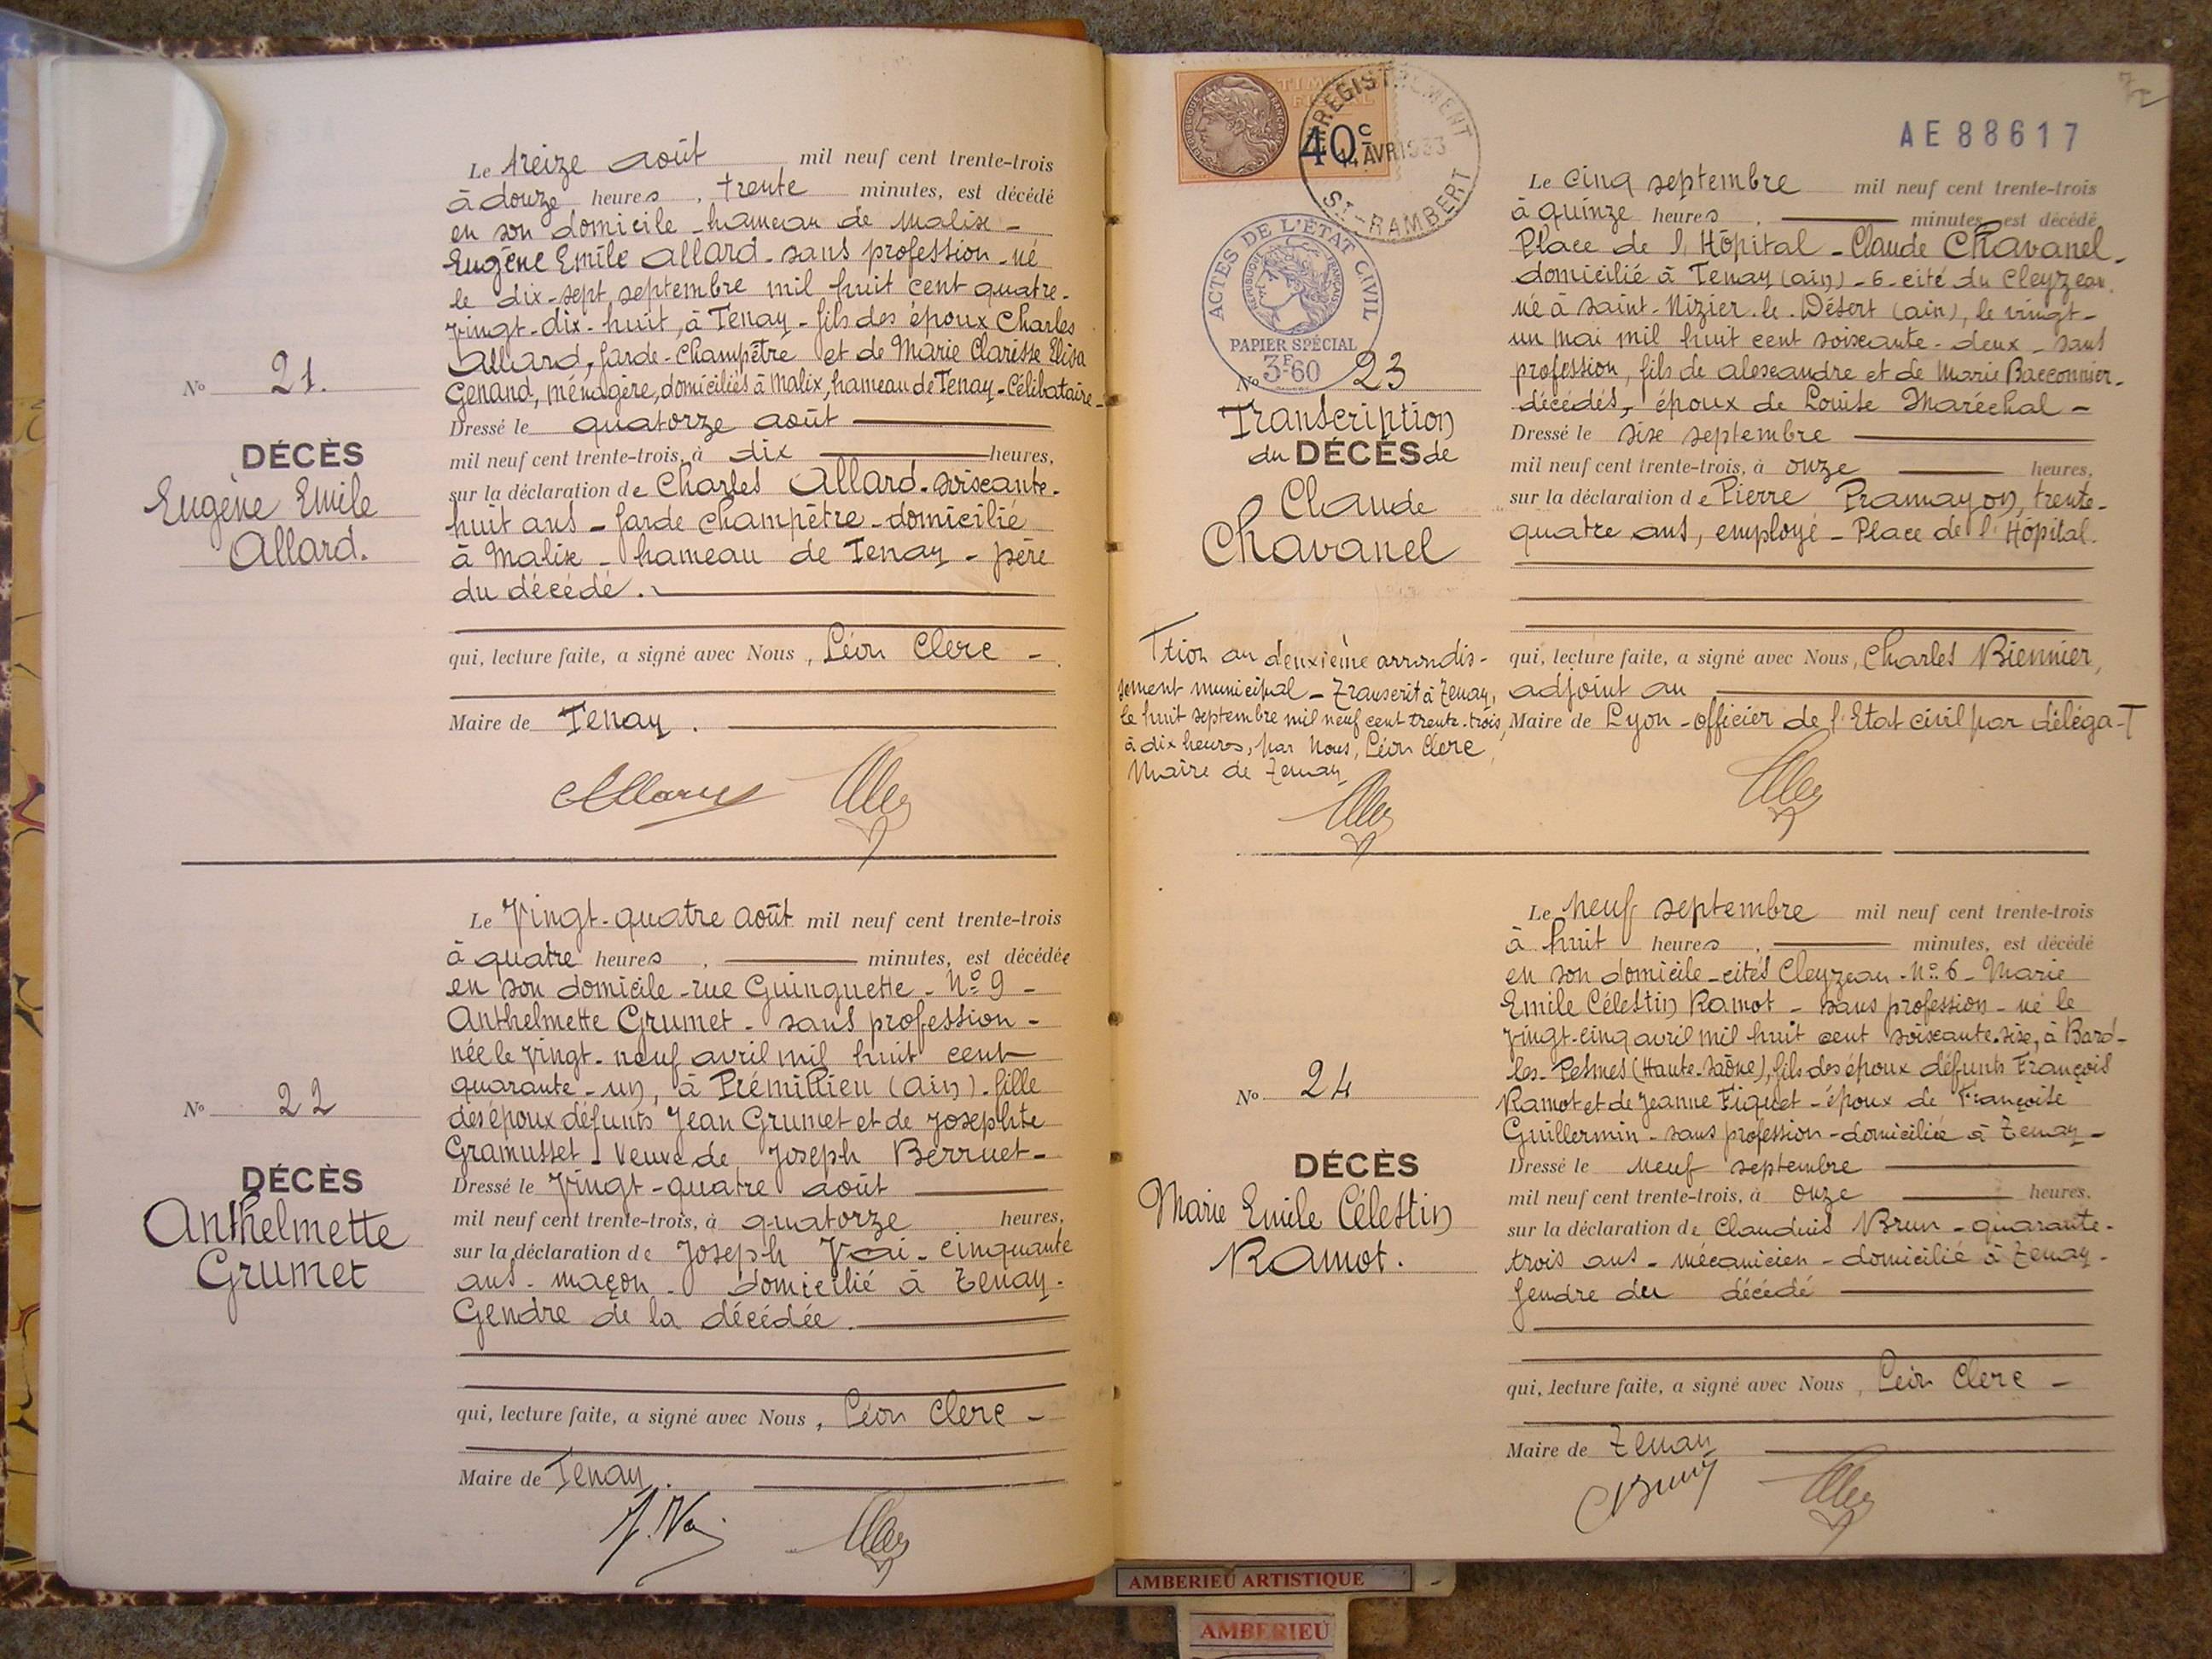 Le treize août mil neuf cent trente-trois
à douze heures, trente minutes, est décédé
en son domicile - hameau de Malix -
Eugène Emile Allard - sans profession - né
le dix-sept septembre mil huit cent quatre-
vingt-dix-huit, à Tenay - fils des époux Charles
Allard, Garde-Champêtre et de Marie Clarisse Elisa
Genand, ménagère, domiciliés à Malix, hameau de Tenay - Célibataire -
No 21.
Dressé le quatorze août
DÉCÈS
mil neuf cent trente-trois, à dix heures,
Eugène Emile
Allard.
sur la déclaration de Charles Allard - soixante-
huit ans - Garde Champêtre - domicilié
à Malix - hameau de Tenay - père
du décédé.
qui, lecture faite, a signé avec Nous, Léon Clerc -
Maire de Tenay.
Le Vingt-quatre août mil neuf cent trente-trois
à quatre heures, minutes, est décédée
en son domicile - rue Guinguette - No 9 -
Anthelmette Grumet - sans profession -
née le vingt-neuf avril mil huit cent
quarante-un, à Prémillieu (ain) - fille
des époux défunts Jean Grumet et de Josephte
Gramusset - Veuve de Joseph Berruet -
No 22
DÉCÈS
Anthelmette
Grumet
Dressé le Vingt-quatre août
mil neuf cent trente-trois, à quatorze heures,
sur la déclaration de Joseph Vai - cinquante
ans - maçon - domicilié à Tenay -
Gendre de la décédée.
qui, lecture faite, a signé avec Nous, Léon Clerc -
Maire de Tenay.
J. Vai
TIMBRE
FISCAL
REPUBLIQUE FRANÇAISE
40c
ENREGISTREMENT
14 AVR 1933
ST-RAMBERT
AE 88617
ACTES DE L'ÉTAT CIVIL
REPUBLIQUE FRANÇAISE
PAPIER SPÉCIAL
3F60
No 23
Transcription
du DÉCÈS de
Claude
Chavanel
Le cinq septembre mil neuf cent trente-trois
à quinze heures, minutes, est décédé
Place de l'Hôpital - Claude Chavanel -
domicilié à Tenay (ain) - 6 - cité du Cleyzeau,
né à Saint-Nizier-le-Désert (ain), le vingt-
un mai mil huit cent soixante-deux - sans
profession, fils de Alexandre et de Marie Bacconnier -
décédés, époux de Louise Maréchal -
Dressé le six septembre
mil neuf cent trente-trois, à onze heures,
sur la déclaration de Pierre Pramayon, trente-
quatre ans, employé - Place de l'Hôpital.
qui, lecture faite, a signé avec Nous, Charles Biennier,
adjoint au
Maire de Lyon - officier de l'Etat civil par déléga-T
Ttion au deuxième arrondis-
sement municipal - Transcrit à Tenay,
le huit septembre mil neuf cent trente-trois,
à dix heures, par Nous, Léon Clerc,
Maire de Tenay
Le neuf septembre mil neuf cent trente-trois
à huit heures, minutes, est décédé
en son domicile - cités Cleyzeau - No 6 - Marie
Emile Célestin Ramot - sans profession - né le
vingt-cinq avril mil huit cent soixante-six, à Bard-
les-Pesmes (Haute-Saône), fils des époux défunts François
Ramot et de Jeanne Fiquet - époux de Françoise
Guillermin - sans profession - domiciliée à Tenay -
No 24
DÉCÈS
Marie Emile Célestin
Ramot.
Dressé le neuf septembre
mil neuf cent trente-trois, à onze heures,
sur la déclaration de Claudius Brun - quarante-
trois ans - mécanicien - domicilié à Tenay -
Gendre du décédé
qui, lecture faite, a signé avec Nous, Léon Clerc -
Maire de Tenay
CBrun
AMBERIEU ARTISTIQUE
AMBERIEU